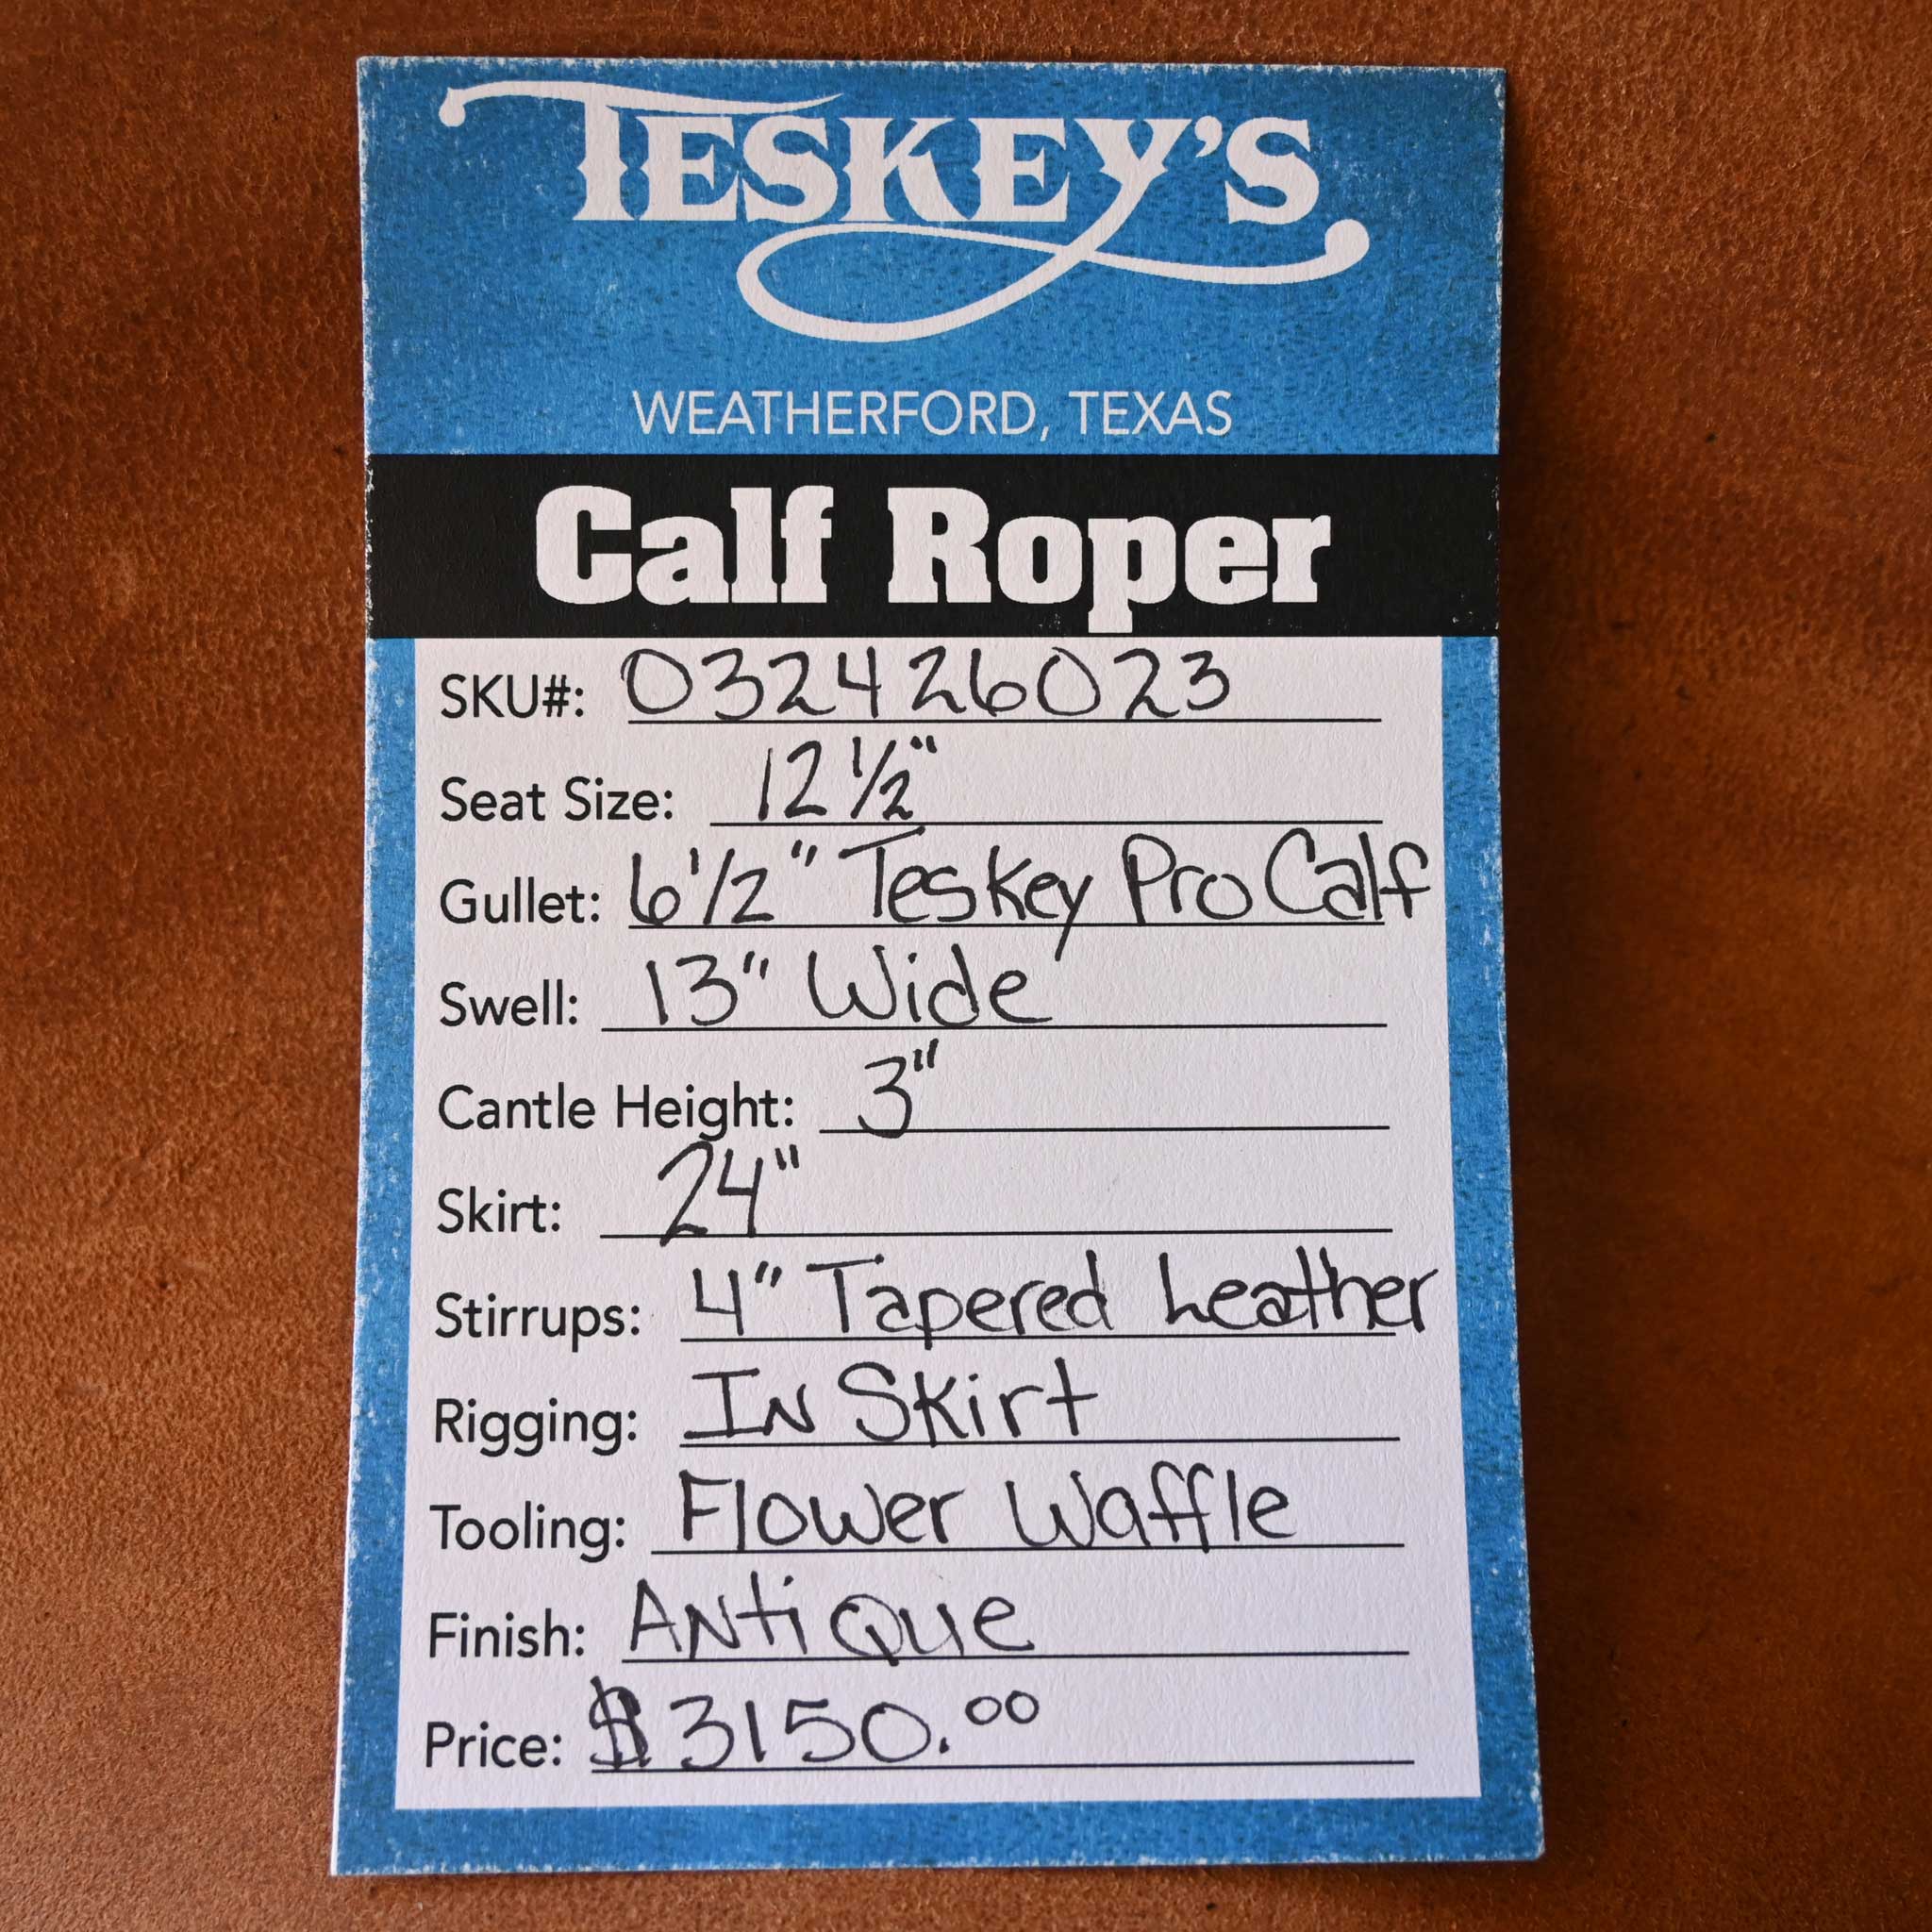 TESKEY'S
WEATHERFORD, TEXAS
Calf Roper
SKU#: 032426023
Seat Size: 12 1/2"
Gullet: 6 1/2" Teskey Pro Calf
Swell: 13" Wide
Cantle Height: 3"
Skirt: 24"
Stirrups: 4" Tapered Leather
Rigging: In Skirt
Tooling: Flower Waffle
Finish: Antique
Price: $3150.00